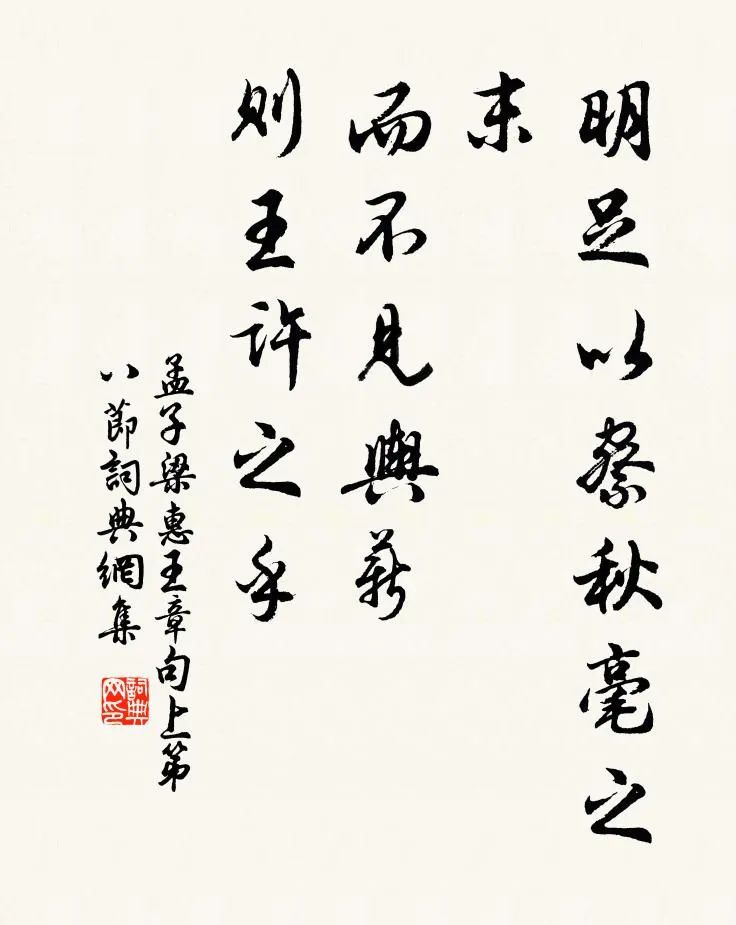 明足以察秋毫之
末
而不見輿薪
則王許之乎
孟子梁惠王章句上第
八節詞典網集
詞典
网印